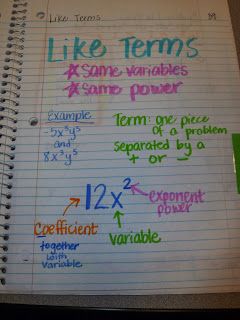 Like Terms
Like Terms
☆ Same variables
☆ Same power
Example
-5x³y⁵
and
8x³y⁵
Term: one piece
of a problem
separated by a
+ or -
12x²
exponent
power
variable
Coefficient
together
with
variable